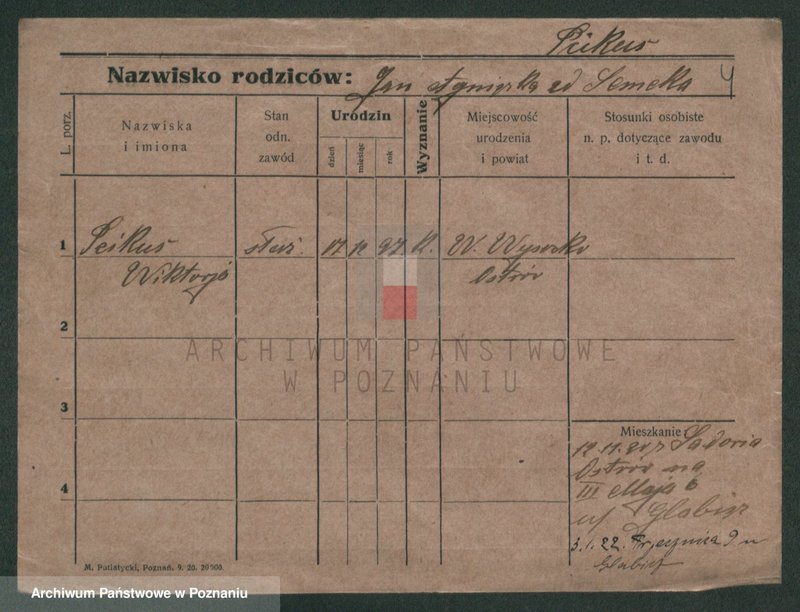 Peikus
Nazwisko rodziców: Jan Agnieszka zd Semeka 4
L. porz.
Nazwiska
i imiona
Stan
odn.
zawód
Urodzin
dzień
miesiąc
rok
Wyznanie
Miejscowość
urodzenia
i powiat
Stosunki osobiste
n. p. dotyczące zawodu
i t. d.
1 Peikus służ. 17 12 97 k. W. Wysocko
Wiktorja Ostrów
2
ARCHIWUM PAŃSTWOWE
W POZNANIU
3
Mieszkanie:
12.11.20 z
Ostrów na
4 III Maja 6
u Glabisz
3.1.22. 9 u
Glabisz
M. Putiatycki, Poznań. 9. 20. 20000.
Archiwum Państwowe w Poznaniu